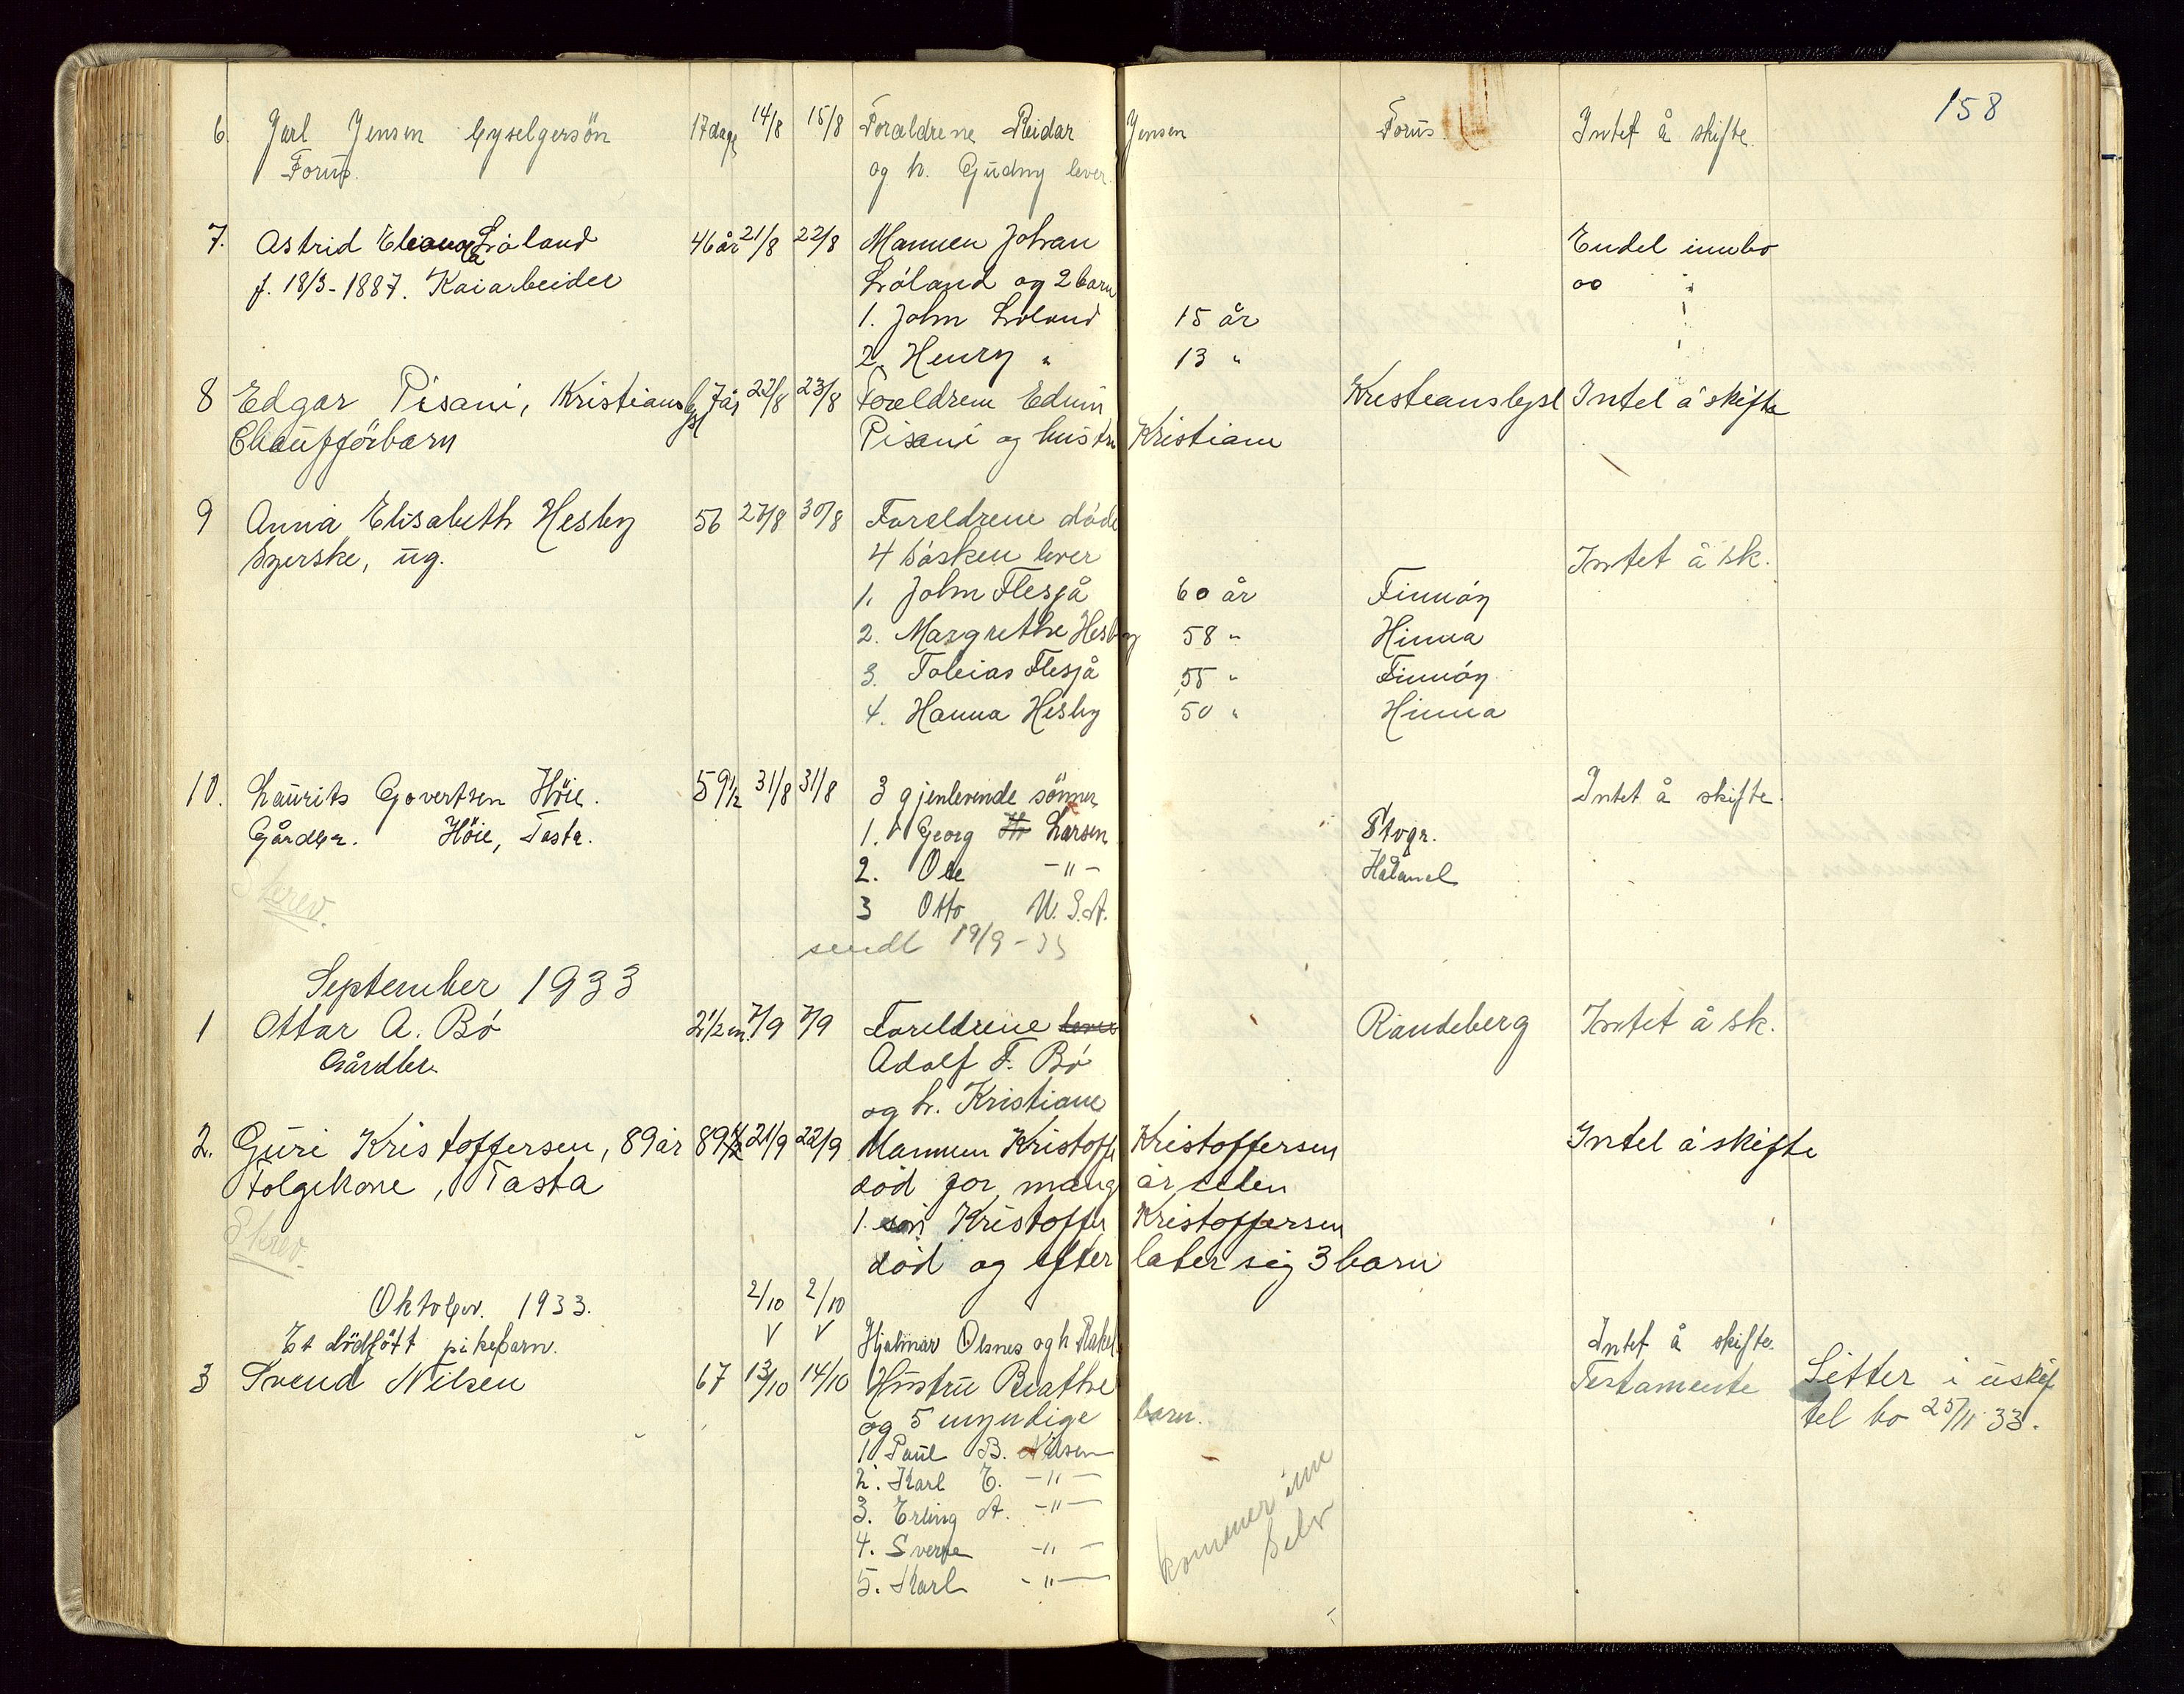 158
6. Jarl Jensen Cyselgersön 17 dage 14/8 15/8 Foreldrene Reidar Jensen Forus. Intet å skifte.
Forus. og h. Gudny lever.
7. Astrid Løland 46 år 21/8 22/8 Mannen Johan Endel innbo
f. 18/3-1887. Kaiarbeider Løland og 2 barn
1. John Løland 15 år
2. Henry " 13 "
8 Edgar Pisani, Kristianslyst 7 år 22/8 23/8 Foreldrene Edvin Kristianslyst Intet å skifte
Chaufförbarn Pisani og hustru Kristiane
9 Anna Elisabeth Hesby 56 27/8 30/8 Foreldrene døde
Syerske, ug. 4 søsken lever Intet å sk.
1. John Flesjå 60 år Finnøy
2. Margrethe Hesby 58 " Hinna
3. Tobias Flesjå 55 " Finnøy
4. Hanna Hesby 50 " Hinna
10. Laurits Govertsen Höie. 59 1/2 31/8 31/8 3 gjenlevende sönner Intet å skifte.
Gårdbr. Höie, Tasta. 1. Georg Larsen Stvgr.
Skrev. 2. Ole -"- Håland
3 Otto U.S.A.
sendt 19/9-33
September 1933
1 Ottar A. Bø 2 1/2 m. 7/9 7/9 Foreldrene lever Randeberg Intet å sk.
Gårdbr. Adolf F. Bø
og h. Kristiane
2. Guri Kristoffersen, 89 år 89 1/2 21/9 22/9 Mannen Kristoffer Kristoffersen Intet å skifte
Folgekone, Tasta død for mange år siden
Skrev. 1. sön Kristoffer Kristoffersen
død og efterlater sig 3 barn
Oktober. 1933. 2/10 2/10
Et dödfött pikebarn. V V Hjalmar Olsnes og h. Rakel. Intet å skifte.
3 Svend Nilsen 67 13/10 14/10 Hustru Beathe Testamente Sitter i uskif
og 5 umyndige barn. tet bo 25/11 33.
1. Paul B. Nilsen
2. Karl E. -"-
3. Erling A. -"-
4. Sverre -"-
5. Karl -"-
kommer inn
selv